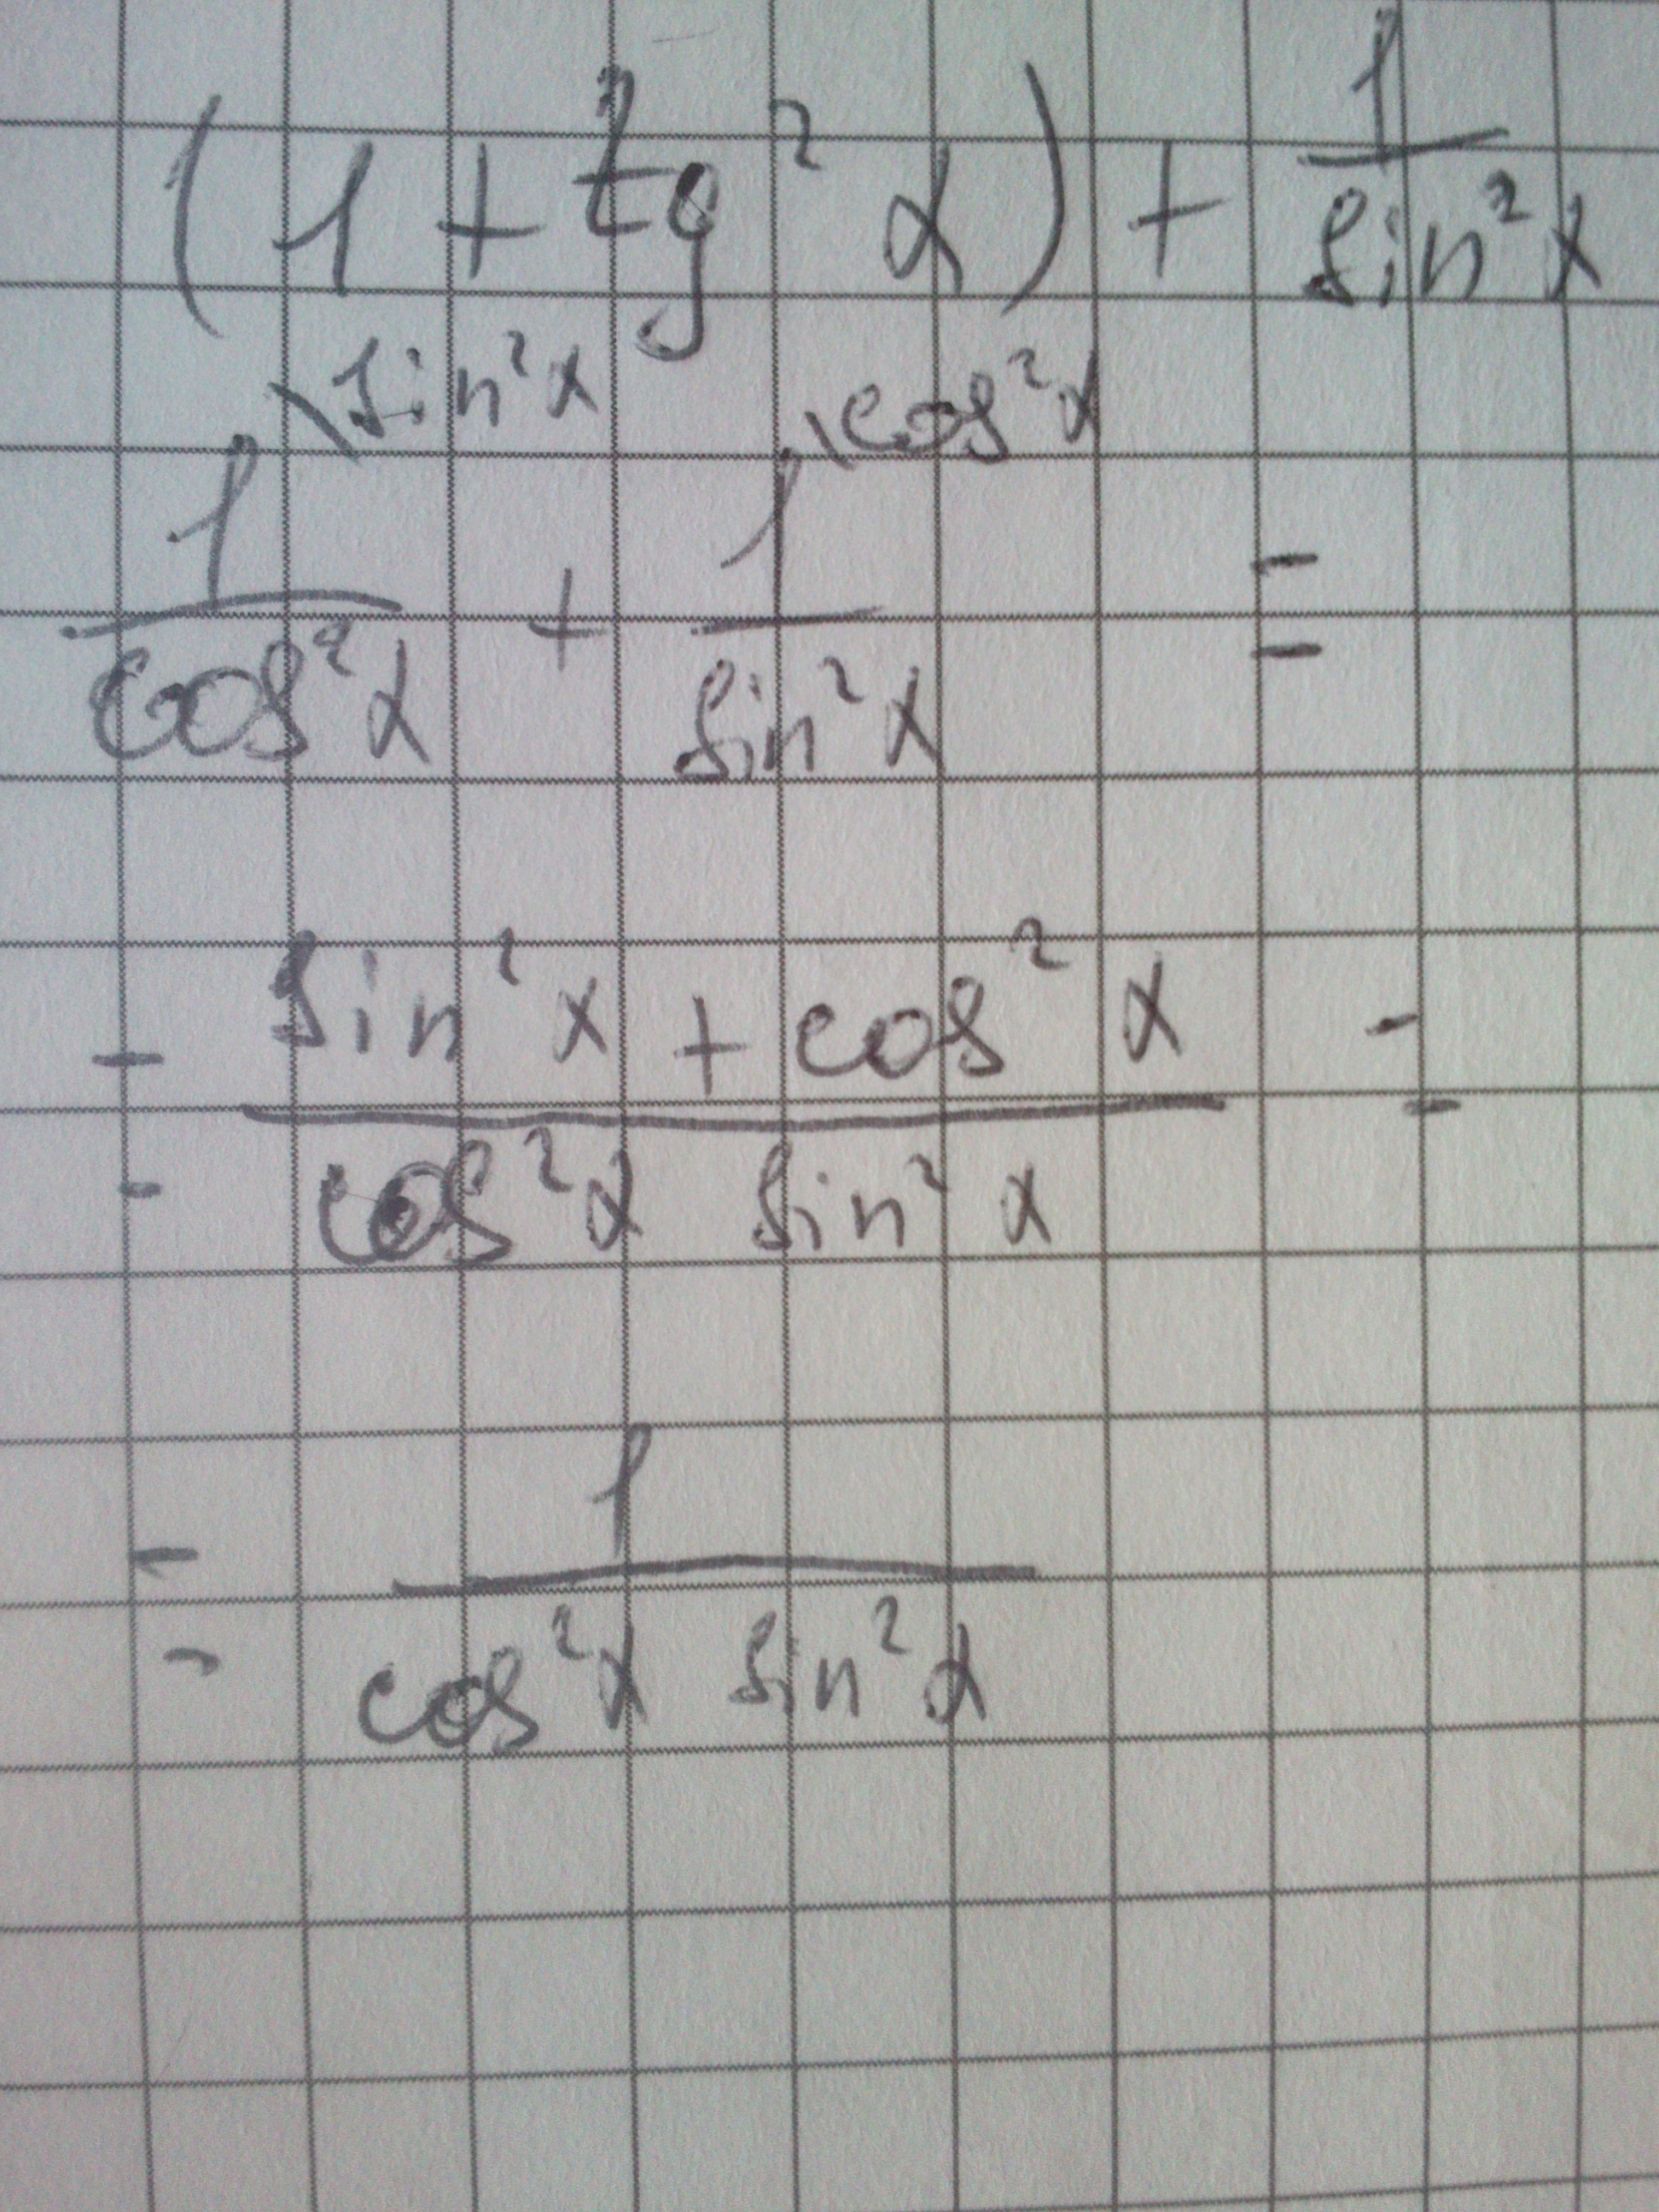 (1 + tg² α) + 1/sin² α
1\sin² α/cos² α + 1\cos² α/sin² α =
= sin² α + cos² α/cos² α sin² α =
= 1/cos² α sin² α